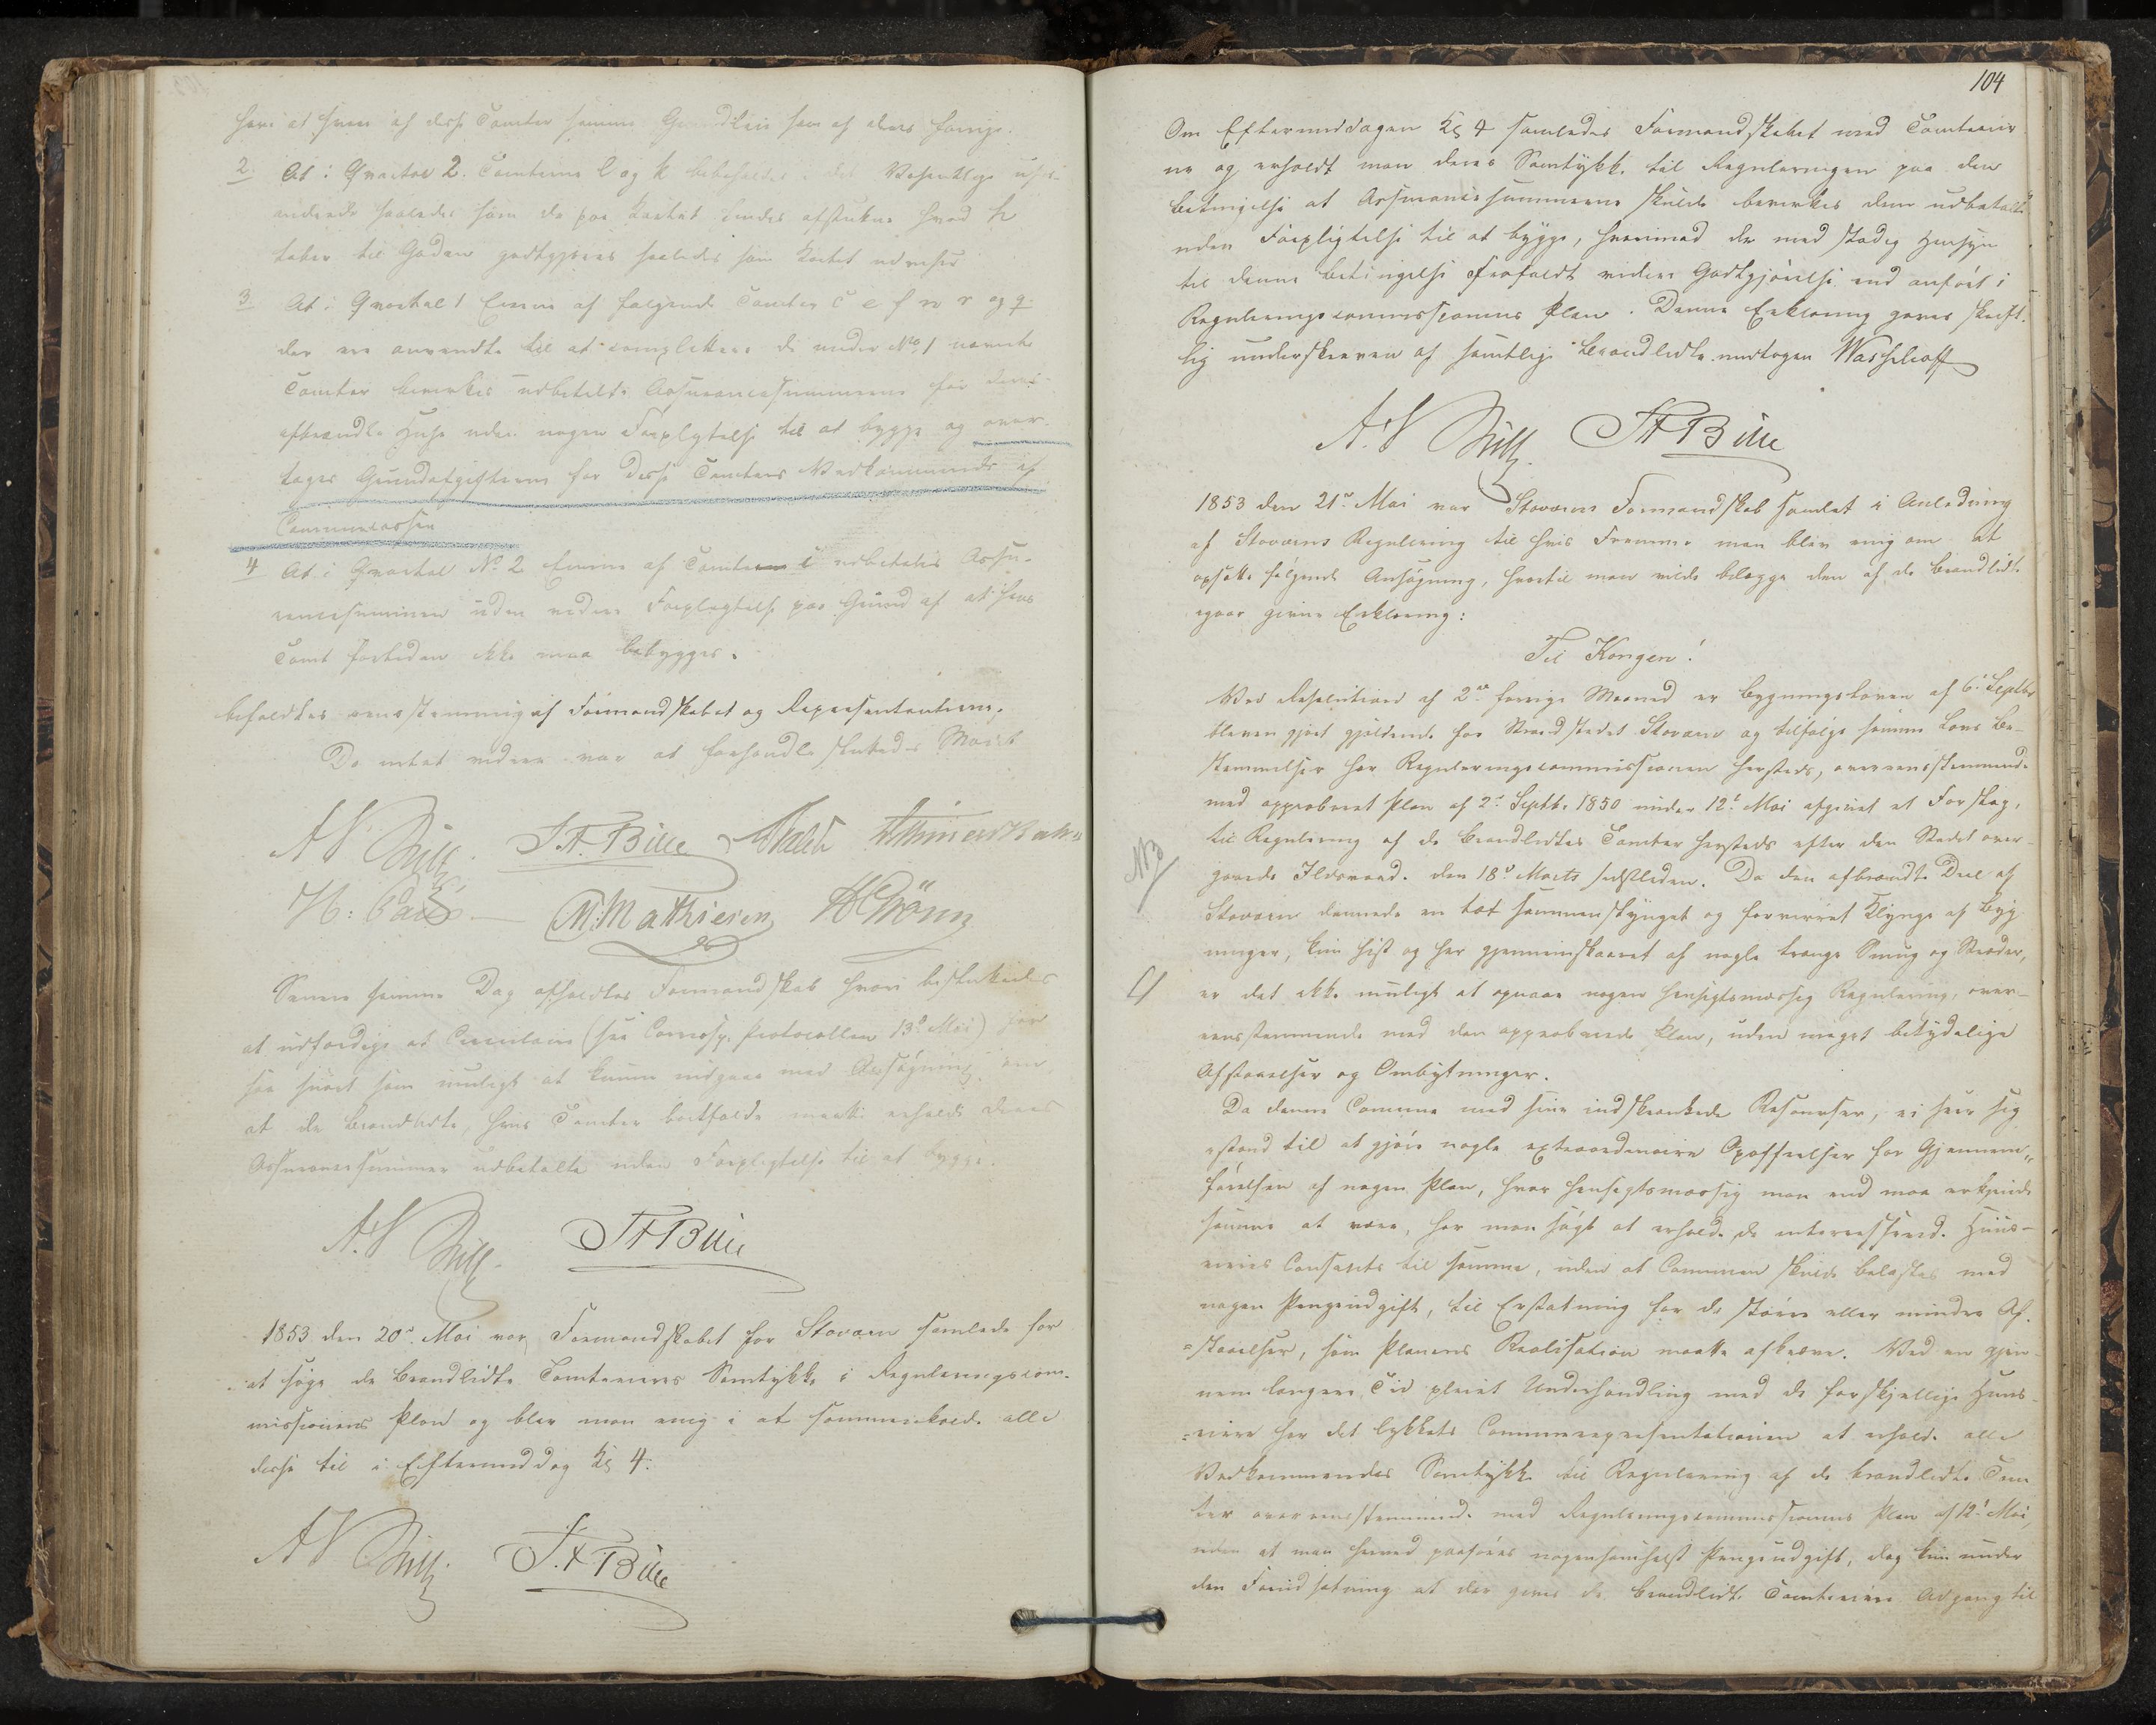 have at svare af disse Tomter samme Grundleie som af deres forrige.
2. At i Qvartal 2. Tomterne l og k beholdes i det Væsentlige ufor-
andrede saaledes som de paa Kartet findes afstukne hvad k
taber til Gaden godtgjøres saaledes som Kartet udviser
3 At i Qvartal 1 Eierne af følgende Tomter c e f n r og q
der ere anvendte til at complettere de under No 1 nævnte
Tomter bevirkes udbetalt Assurancesummerne for deres
afbrændte Huse uden nogen Forpligtelse til at bygge og over-
tages Grundafgifterne for disse Tomters Vedkommende af
Communecassen
4 At i Qvartal No 2 Eieren af Tomten i udbetales Assu-
rancesummen uden videre Forpligtelse paa Grund af at hans
Tomt forhen ikke maa bebygges.
beholdtes eensstemmig af Formandskabet og Repræsentanterne.
Da intet videre var at forhandle sluttedes Mødet
A.V. J. A. Bille
H: M: Mathiesen
Senere samme Dag afholdtes Formandskab hvori besluttedes
at udfærdige et Circulaire (see Corresp. Protocollen 13de Mai) for
saa snart som muligt at kunne indgaae med Ansøgning om
at de Brandlidte, hvis Tomter bortfaldt maatte erholde deres
Assurancesummer udbetalte uden Forpligtelse til at bygge.
A.V. JABille
1853 den 20de Mai var Formandskabet for Staværn samlede for
at søge de brandlidte Tomteeieres Samtykke i Reguleringscom-
missionens Plan og blev man enig i at sammenkalde alle
disse til i Eftermiddag Kl 4.
A V J. A Bille
104
Om Eftermiddagen Kl 4 samledes Formandskabet med Tomteeier-
ne og erholdt man deres Samtykke til Reguleringen paa den
Betingelse at Assurancesummerne skulde bevirkes dem udbetalt
uden Forpligtelse til at bygge, hvorimod de med stadig Hensyn
til denne Betingelse frafaldt videre Godtgjörelse end anfört i
Reguleringscommissionens Plan. Denne Erklæring gaves skrift-
lig underskreven af samtlige Brandlidte undtagen
A.V JABille
1853 den 21de Mai var Staværns Formandskab samlet i Anledning
af Staværns Regulering til hvis Fremme man blev enig om at
opsætte følgende Ansögning, hvortil man vilde belægge den af de Brandlidte
igaar givne Erklæring:
Til Kongen!
Ved Resolution af 2den forrige Maaned er Bygningsloven af 6te Septbr
bleven gjort gjældende for Strandstedet Staværn og tilfølge samme Lovs Be-
stemmelser har Reguleringscommissionen hersteds, overeensstemmende
med approberet Plan af 2den Septbr 1850 under 12te Mai afgivet et Forslag
til Regulering af de Brandlidtes Tomter hersteds efter den Stedet over-
gaaede Ildsvaade den 18de Marts sidstleden. Da den afbrændte Deel af
NB
Staværn dannede en tæt sammenklynget og forvirret Klynge af Byg-
ninger, kun hist og her gjennemskaaret af nogle trange Smug og Stræder,
er det ikke muligt at opnaae nogen hensigtsmæssig Regulering, over-
eensstemmende med den approberede Plan, uden meget betydelige
Afstaaelser og Ombytninger.
Da denne Commune med sine indskrænkede Resourser, ei seer sig
istand til at gjöre nogle extraordinaire Opoffrelser for Gjennem-
förelsen af nogen Plan, hvor hensigtsmæssig man end maa erkjende
samme at være, har man sögt at erholde de interesserede Huus-
eieres Consents til samme, uden at Communen skulde belastes med
nogen Pengeudgift, til Erstatning for de större eller mindre Af-
staaelser, som Planens Realisation maatte afkræve. Ved en gjen-
nem længere Tid pleiet Underhandling med de forskjellige Huus-
eiere har det lykkets Communerepræsentationen at erholde alle
Vedkommendes Samtykke til Regulering af de brandlidte Tom-
ter overeensstemmende med Reguleringscommissionens Plan af 12te Mai,
uden at man herved paaföres nogensomhelst Pengeudgift, dog kun under
den Forudsætning at der gives de brandlidte Tomteeiere Adgang til